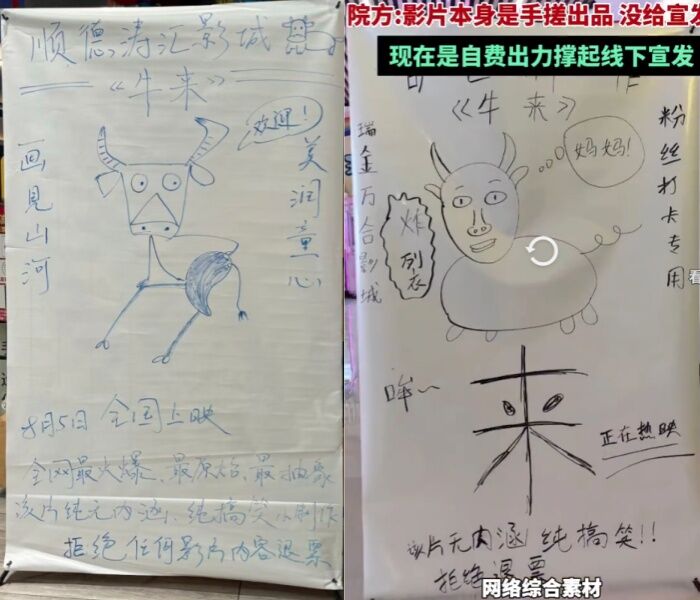 顺德涛汇影城
《牛来》
欢迎!
画見山河
美润童心
8月5日 全国上映
全网最火爆、最原始、最抽象
该片纯无内涵、纯搞笑小制作
拒绝任何影片内容退票
院方:影片本身是手搓出品 没给宣发
现在是自费出力撑起线下宣发
《牛来》
瑞金万合影城
粉丝打卡专用
妈妈!
炸裂
哞~
来
正在热映
该片无内涵 纯搞笑!!
拒绝退票
网络综合素材
看